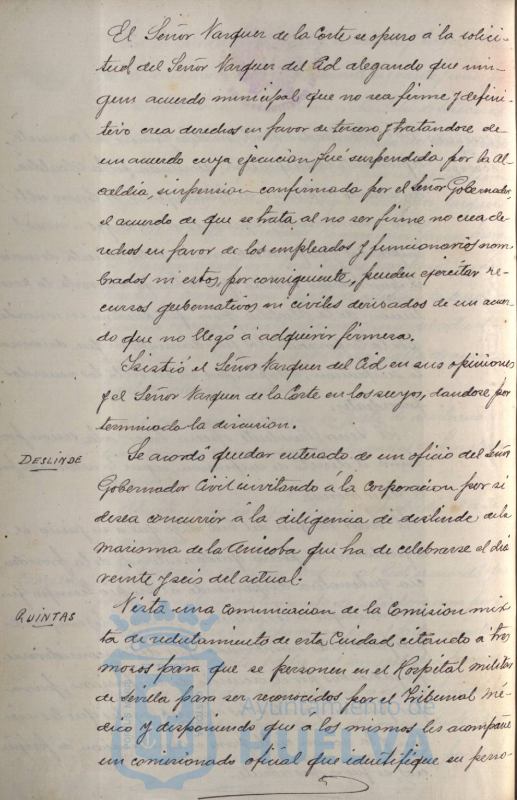 El Señor Vazquez de la Corte se opuso á la solici-
tud del Señor Vazquez del Cid alegando que nin-
gun acuerdo municipal que no sea firme y defini-
tivo crea derechos en favor de tercero y tratandose de
un acuerdo cuya ejecucion fué suspendida por la Al-
caldia, suspension confirmada por el Señor Gobernador,
el acuerdo de que se trata, al no ser firme, no crea de-
rechos en favor de los empleados y funcionarios nom-
brados ni estos, por consiguiente, pueden ejercitar re-
cursos gubernativos ni civiles derivados de un acuer-
do que no llegó á adquirir firmeza.
Isistió el Señor Vazquez del Cid en sus opiniones
y el Señor Vazquez de la Corte en las suyas, dandose por
terminada la discusion.
DESLINDE
Se acordó quedar enterado de un oficio del Señor
Gobernador Civil invitando á la Corporacion por si
desea concurrir á la diligencia de deslinde de la
marisma de la Anicoba que ha de celebrarse el dia
veinte y seis del actual.
QUINTAS
Vista una comunicacion de la Comision mix-
ta de reclutamiento de esta Ciudad citando á tres
mozos para que se personen en el Hospital militar
de Sevilla para ser reconocidos por el Tribunal Mé-
dico y disponiendo que á los mismos les acompañe
un comisionado oficial que identifique su perso-
Ayuntamiento de
HUELVA